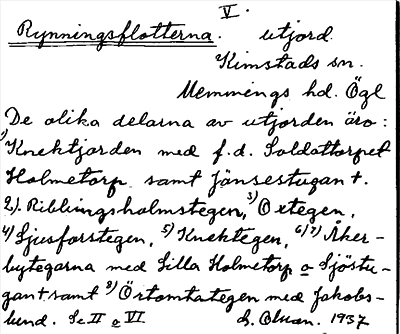 V.
Rynningsflottorna. utjord.
Kimstads sn.
Memmings hd. Ögl
De olika delarna av utjorden äro:
1) Knektjorden med f.d. Soldattorpet
Holmetorp samt Jänsestugan†.
2). Ribbingsholmstegen, 3) Oxtegen,
4) Ljusforstegen, 5) Knektegen, 6/7) Åker-
bytegarna med Lilla Holmetorp o Sjöstu-
gan† samt 8) Örtomtategen med Jakobs-
lund. Se II o VI. 1937